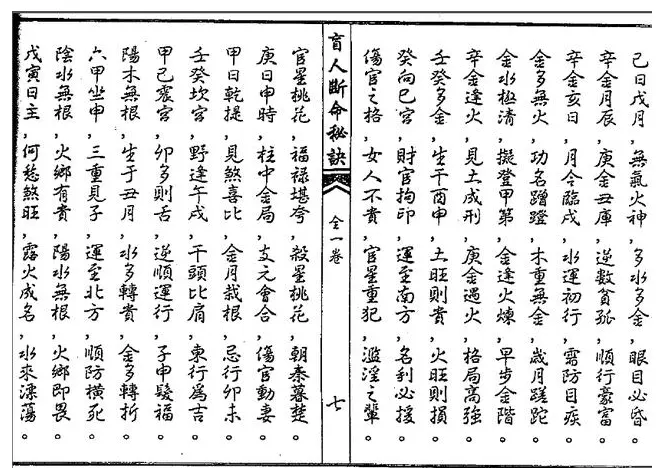 己日戊月，無氣火神，多水多金，眼目必昏。
辛金月辰，庚金丑庫，逆數貧孤，順行豪富。
辛金亥日，月令臨戌，水運初行，需防目疾。
金多無火，功名蹭蹬，木重無金，歲月蹉跎。
金水極清，擬登甲第，金逢火煉，早步金階。
辛金逢火，見土成刑，庚金遇火，格局高強。
壬癸多金，生于酉申，土旺則貴，火旺則損。
癸向巳宮，財官拘印，運至南方，名利必援。
傷官之格，女人不貴，官星重犯，濫淫之輩。
盲人斷命秘訣
全一卷
七
官星桃花，福祿堪夸，殺星桃花，朝秦暮楚。
庚日申時，柱中金局，支元會合，傷官動妻。
甲日乾提，見煞喜比，金月栽根，忌行卯未。
壬癸坎宮，野逢午戌，干頭比肩，東行為吉。
甲己震宮，卯多則舌，逆順運行，子申髮福。
陽木無根，生于丑月，水多轉貴，金多轉折。
六甲坐申，三重見子，運至北方，順防橫死。
陰水無根，火鄉有貴，陽水無根，火鄉即畏。
戊寅日主，何愁煞旺，露火成名，水來漂蕩。